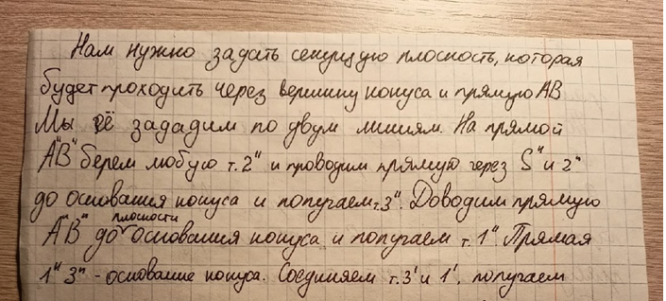 Нам нужно задать секущую плоскость, которая
будет проходить через вершину конуса и прямую АВ
Мы её зададим по двум линиям. На прямой
А"В" берем любую т.2" и проводим прямую через S" и 2"
до основания конуса и получаем т.3". Доводим прямую
А"В" до плоскости основания конуса и получаем т.1" Прямая
1"3" - основание конуса. Соединяем т.3' и 1', получаем